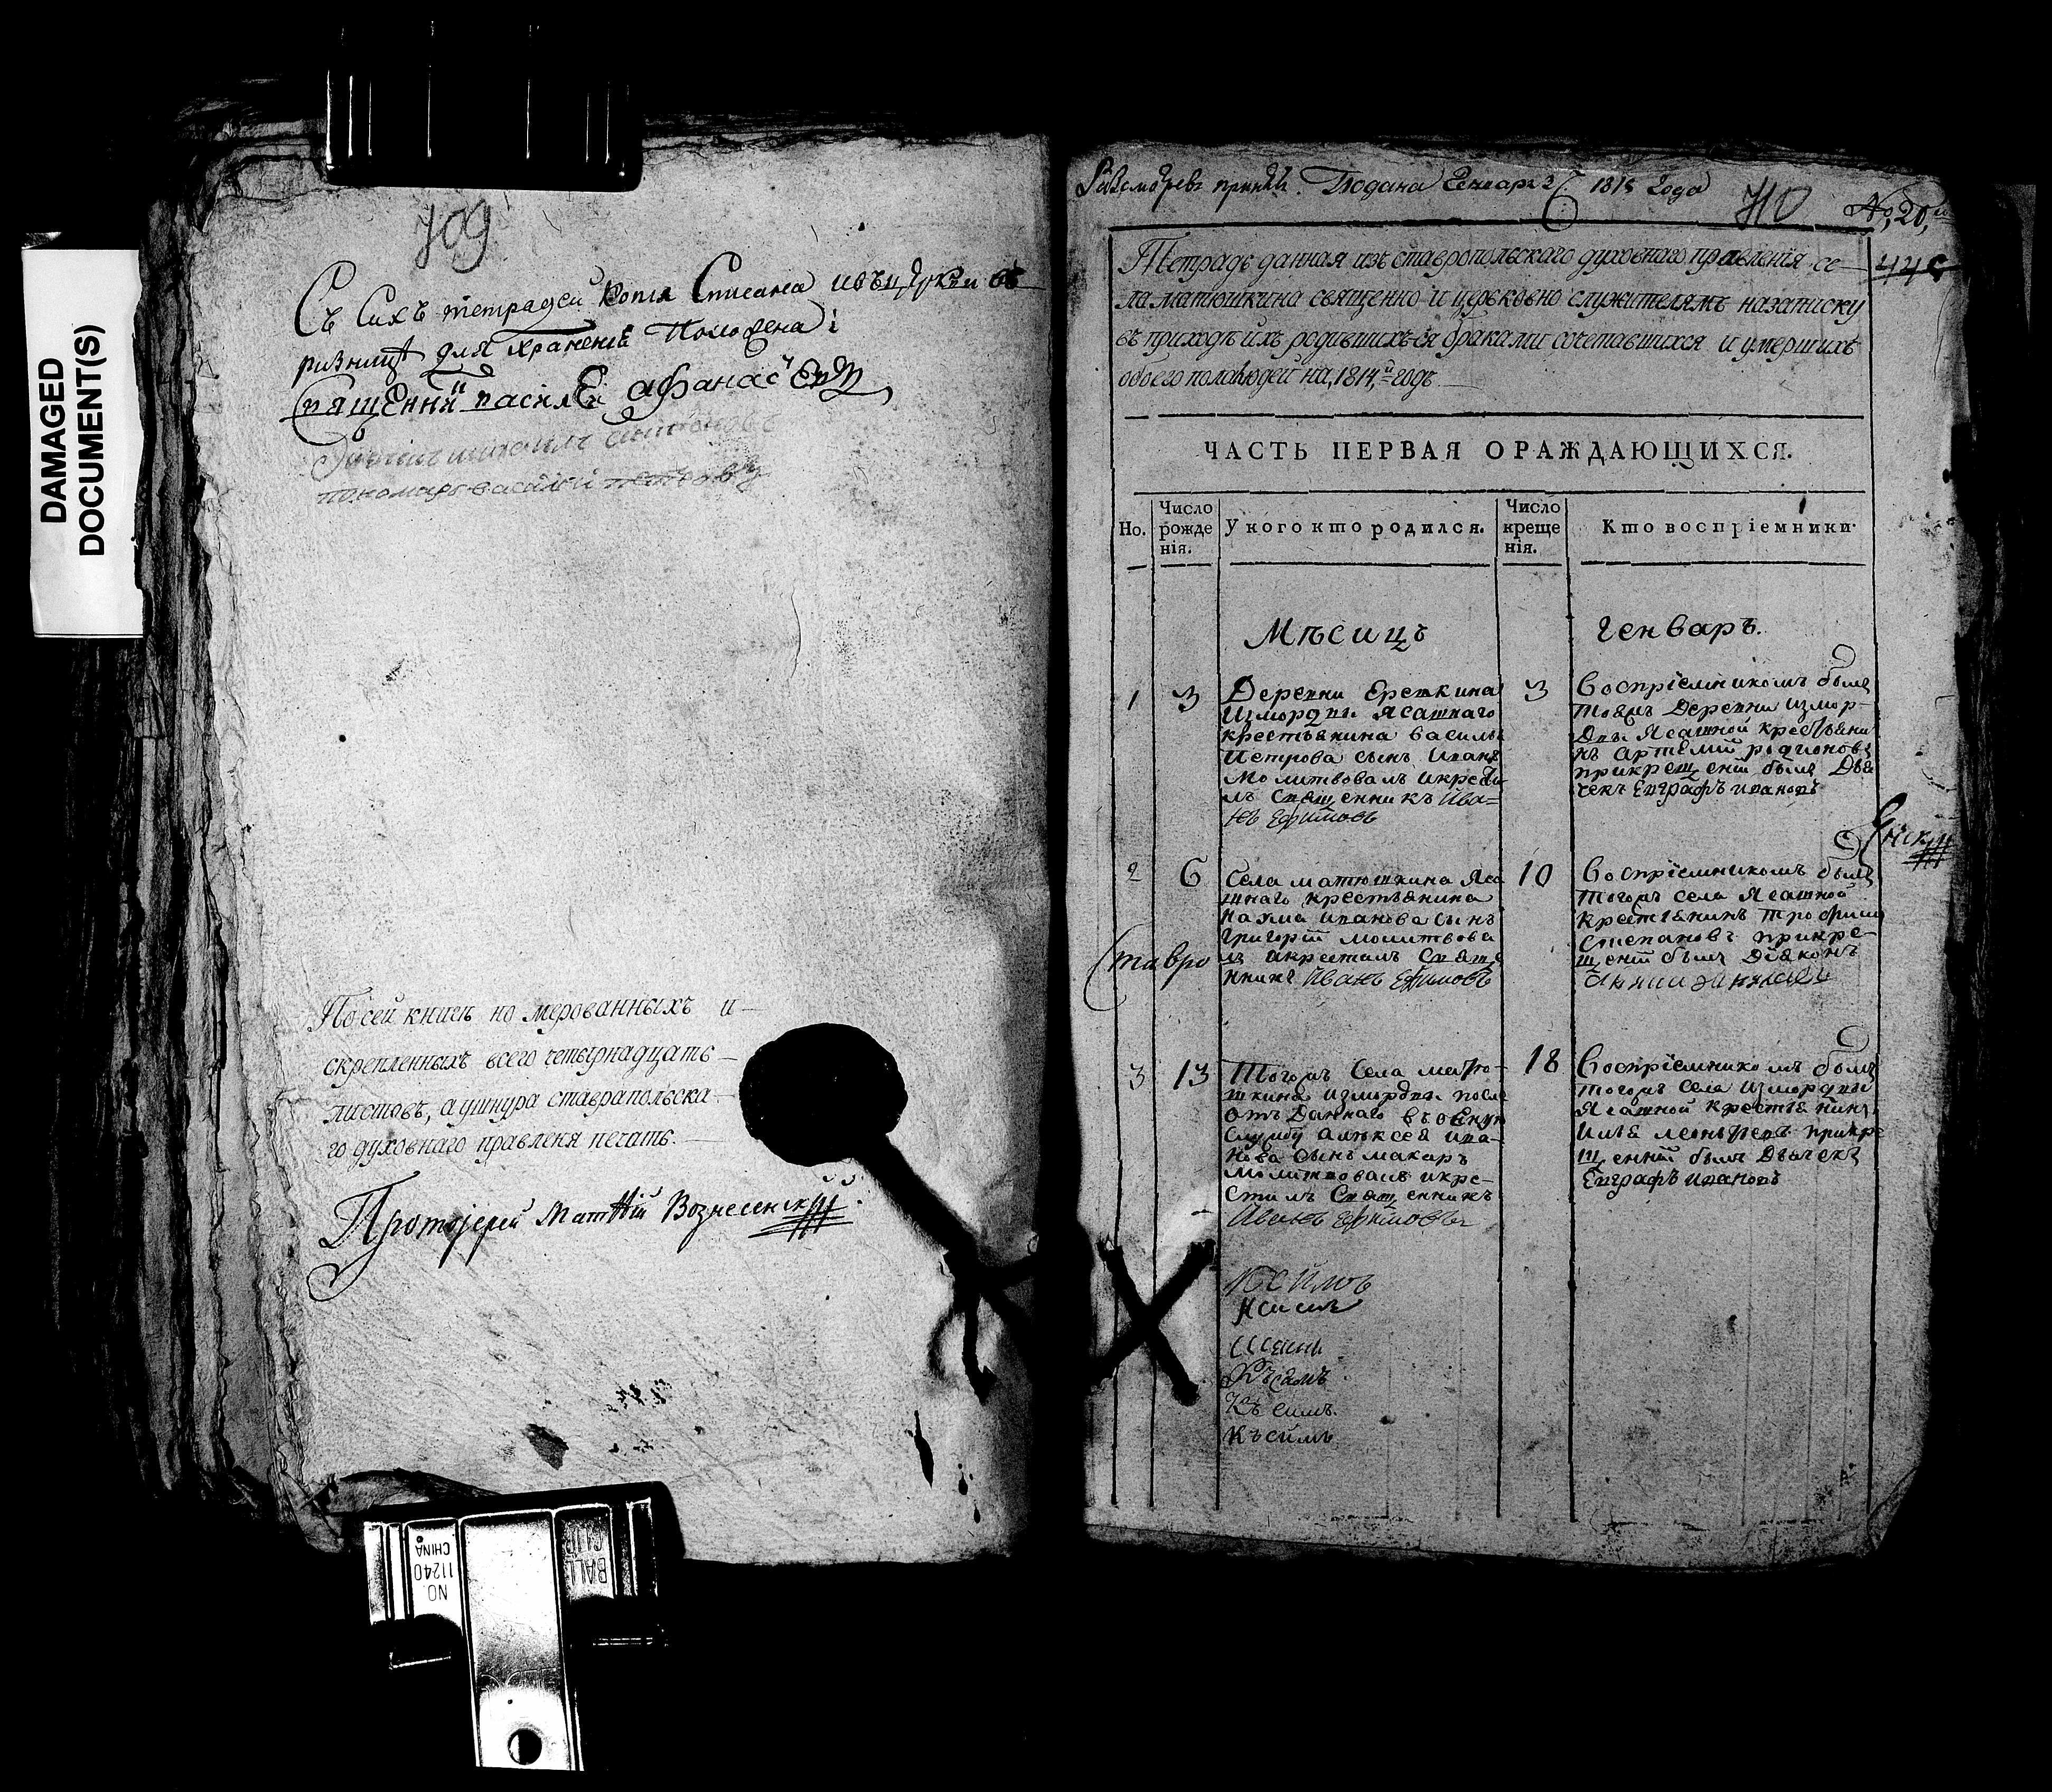 DAMAGED
DOCUMENT(S)
709
Съ Сихъ тетрадей Копия Списана и въ церкви въ
ризницѣ для хранениѣ Положена:
Священнй василей афанасьевъ
пономарь василей петровъ
По сей книгѣ но мерованныхъ и
скрепленныхъ всего четырнадцать
листовъ, а у шнура ставрапольска
го духовнаго правленя печать.
Протоіерей Матѳій Вознесенскій
NO.
11240
CHINA
BALL
CLIP
Подана Генваря 1815 Года
710
No, 20,го
Тетрадь данная изъ ставропольскаго духовнаго правленія се
ла матюшкина священно и церьковно служителямъ на записку
въ приходѣ ихъ родившихъ-ся браками сочетавшихся и умершихъ
обоего пола людей на, 1814,й годъ
ЧАСТЬ ПЕРВАЯ О РАЖДАЮЩИХСЯ.
Но.
Число рожде нія.
У кого кто родился.
Число креще нія.
Кто воспріемники.
Мѣсяцъ Генварь.
1 3
Деревни Ереткина
Измордвы Ясашнаго
крестьянина василья
Петрова сынъ Иванъ
Молитвовалъ икрести
лъ Священникъ Ива=
нъ Ефимовъ
3
Воспріемникомъ былъ
тоежъ Деревни измор-
Двы Ясашной крестьяни
нъ артемій родионовъ
прикрещеніи былъ Дья
чекъ Евграфъ ивановъ
2 6
Села матюшкина Яса
шнаго крестьянина
наума иванова сынъ
григорій молитвова
лъ икрестилъ Свяще
нникъ Иванъ Ефимовъ
10
Воспріемникомъ былъ
тогожъ села Ясашной
крестьянинъ трофимъ
Степановъ прикре-
щеніи былъ Дьяконъ
Ставро
3 13
Тогожъ Села матю-
шкина измордвы после
отъ Даннаго въ оенную
Службу алексея ива-
нова сынъ макаръ
молитвовалъ икре-
стилъ Священникъ
Иванъ Ефимовъ
18
Воспріемникомъ былъ
тогожъ села измордвы
Ясашной крестьянинъ
Илья леонтьевъ прикре
щенніи былъ Дьячекъ
Евграфъ ивановъ
Къ симъ.
Къ симъ